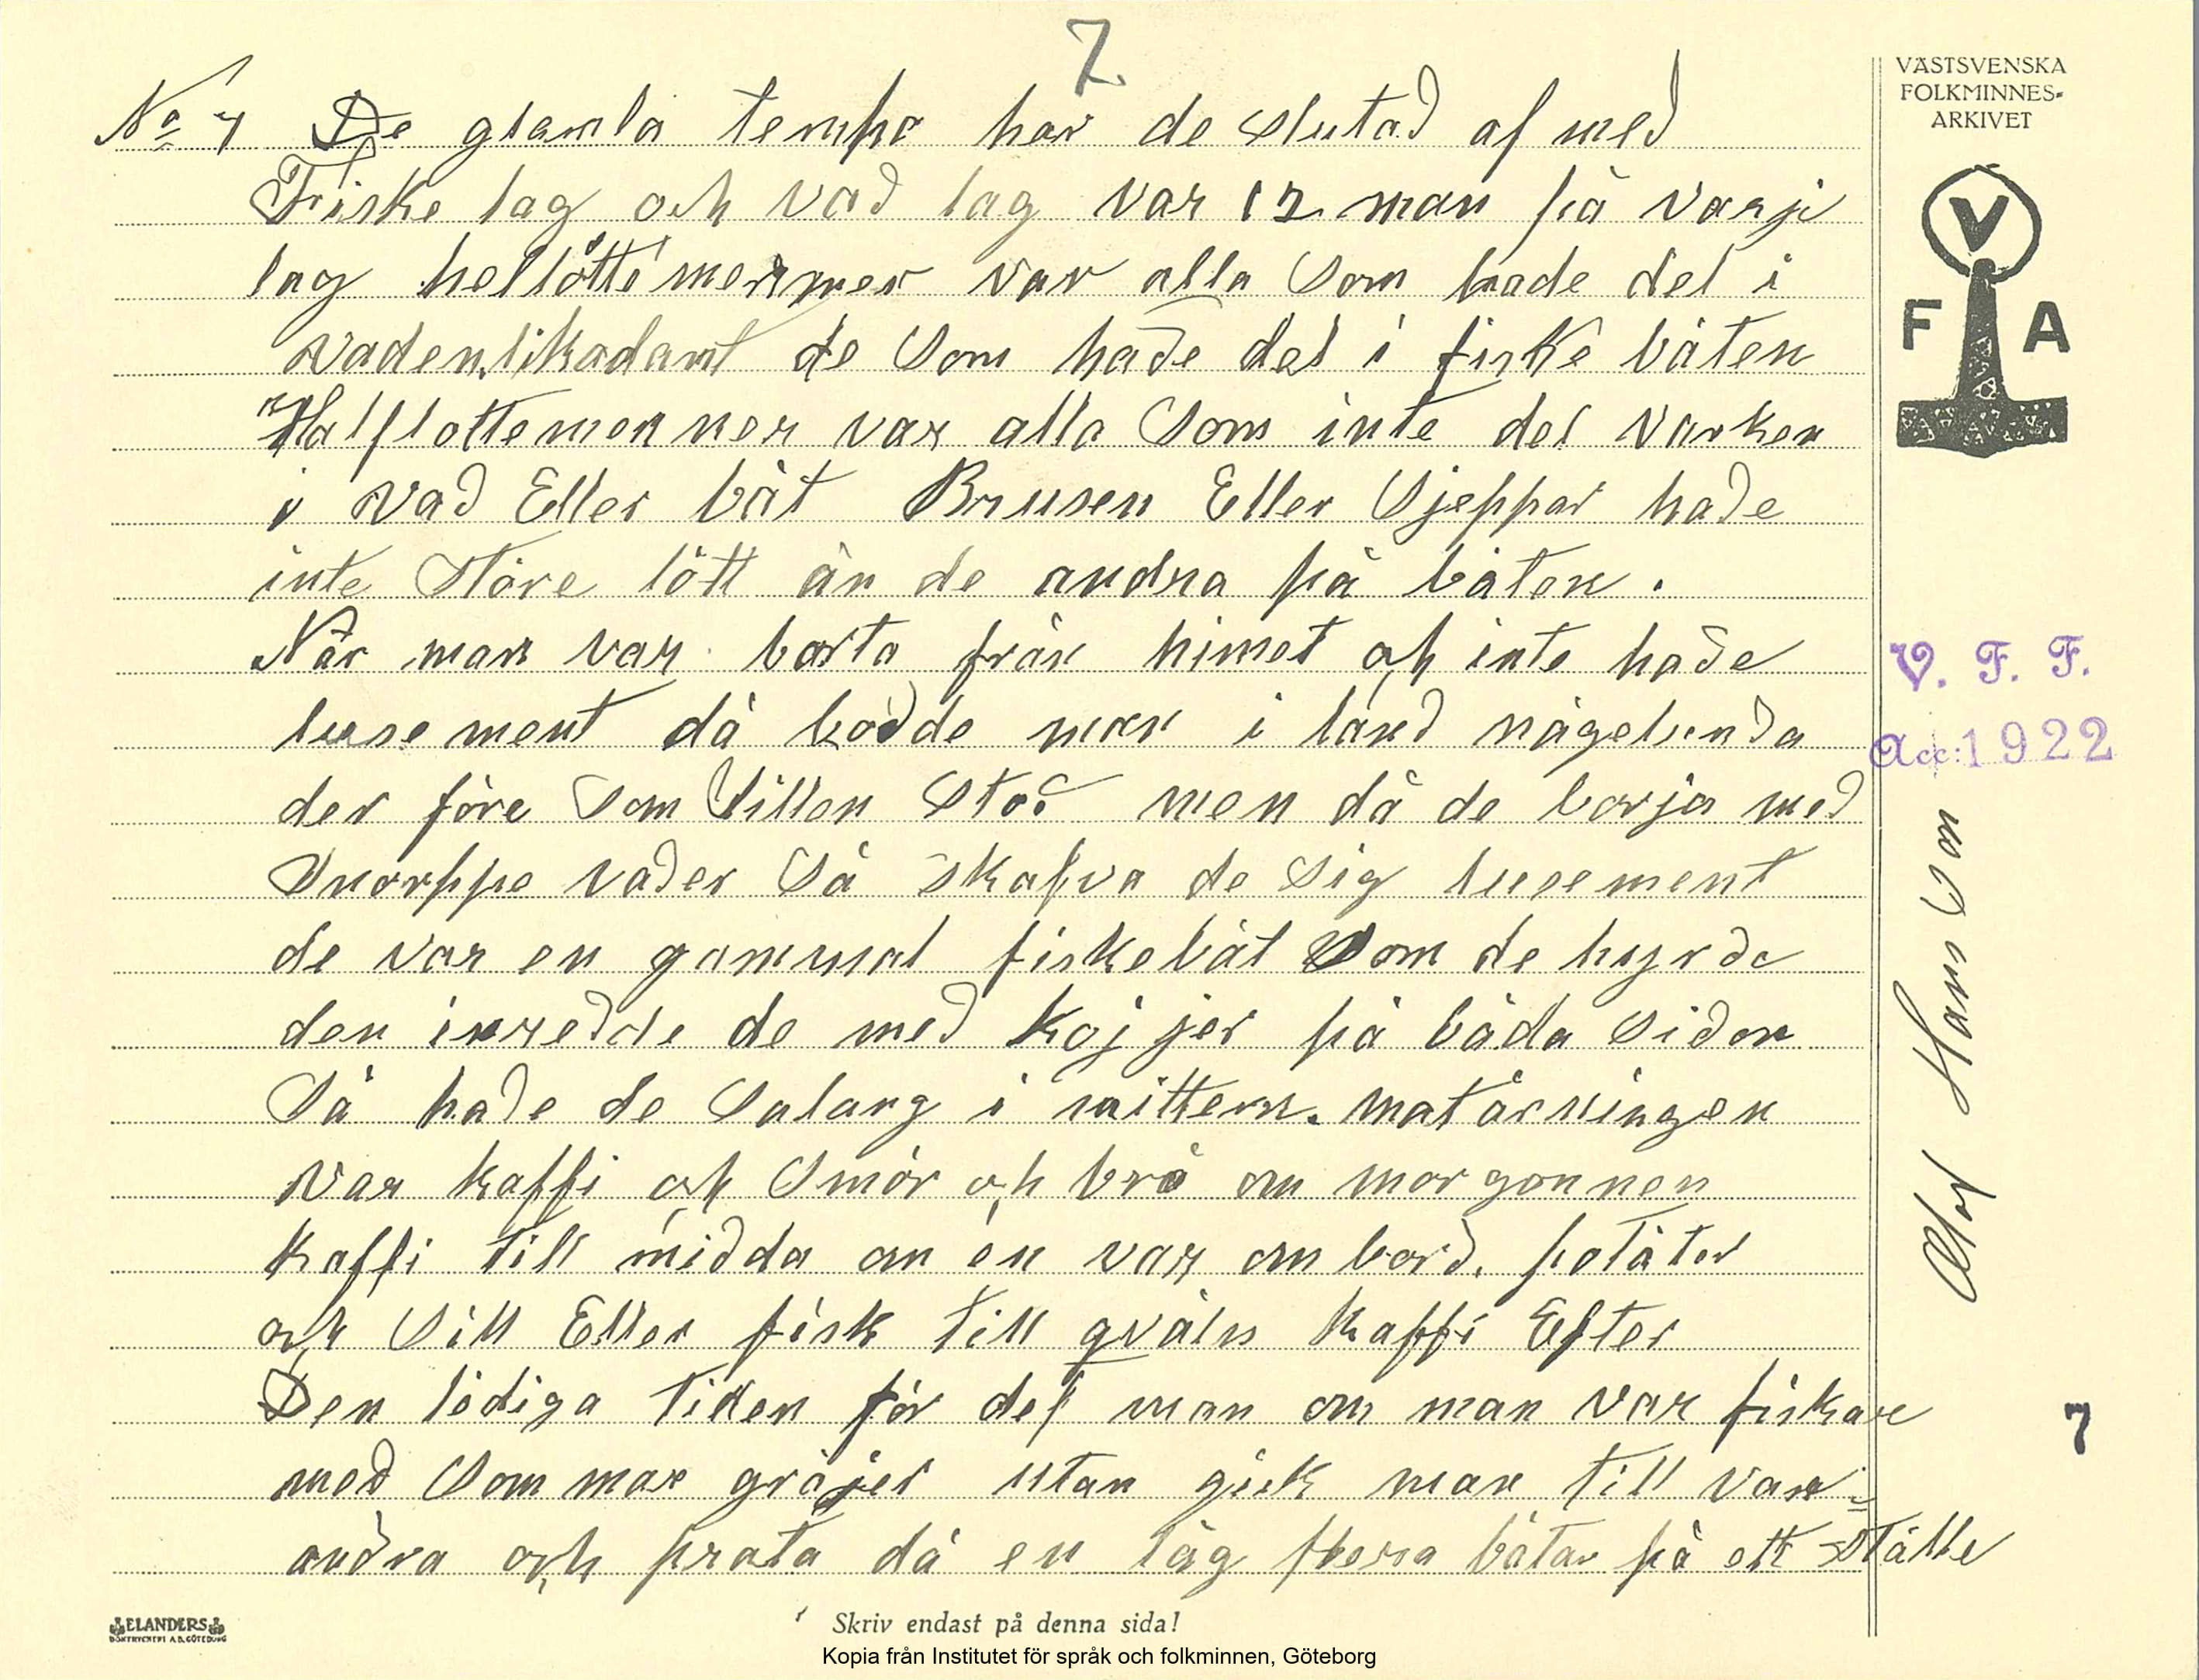 7
No 7 De glamla tempo har de slutad af med
Friske lag och vad lag var 12 man på varje
lag hellötte menner var alla Som hade del i
vaden likadant de Som hade del i fiske båten
Halflottemenner var alla Som inte del varken
i vad Eller båt Brusen Eller Sjeppar hade
inte större lött än de andra på båten.
När man var borta från himet och inte hade
lusement då bodde man i land någelunda
der före Som Sillen Stod men då de borja med
Snorppe vader Så skafva de Sig lusement
de var en gammal fiskebåt Som de hyrde
den inredde de med kojjer på båda sidor
Så hade de Salang i mitten. matärningen
var kaffi och Smör och brö om morgonnen
kaffi till midda om en var om bord. potäter
och Sill Eller fisk till qväln kaffi Efter
Den lediga tiden för def man om man var fiskare
med Som mar gräjer utan gick man till var-
andra och prata då en låg flera båtar på ett ställe
VÄSTSVENSKA
FOLKMINNES-
ARKIVET
V
F A
V. F. F.
Acc: 1922
Olof Hansson
7
ELANDERS
BOKTRYCKERI A.B. GÖTEBORG
Skriv endast på denna sida!
Kopia från Institutet för språk och folkminnen, Göteborg